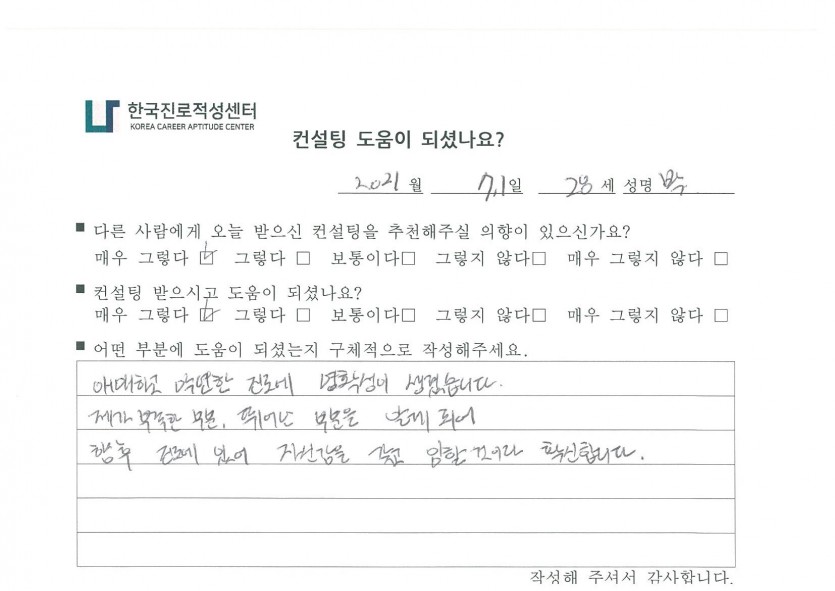 한국진로적성센터
KOREA CAREER APTITUDE CENTER
컨설팅 도움이 되셨나요?
2021 월 7.1 일 28 세 성명 박
■ 다른 사람에게 오늘 받으신 컨설팅을 추천해주실 의향이 있으신가요?
매우 그렇다 ☑ 그렇다 □ 보통이다□ 그렇지 않다□ 매우 그렇지 않다 □
■ 컨설팅 받으시고 도움이 되셨나요?
매우 그렇다 ☑ 그렇다 □ 보통이다□ 그렇지 않다□ 매우 그렇지 않다 □
■ 어떤 부분에 도움이 되셨는지 구체적으로 작성해주세요.
애매하고 막연한 진로에 명확성이 생겼습니다.
제가 부족한 부분, 뛰어난 부분을 알게 되어
향후 진로에 있어 자신감을 갖고 임할 것이라 확신합니다.
작성해 주셔서 감사합니다.